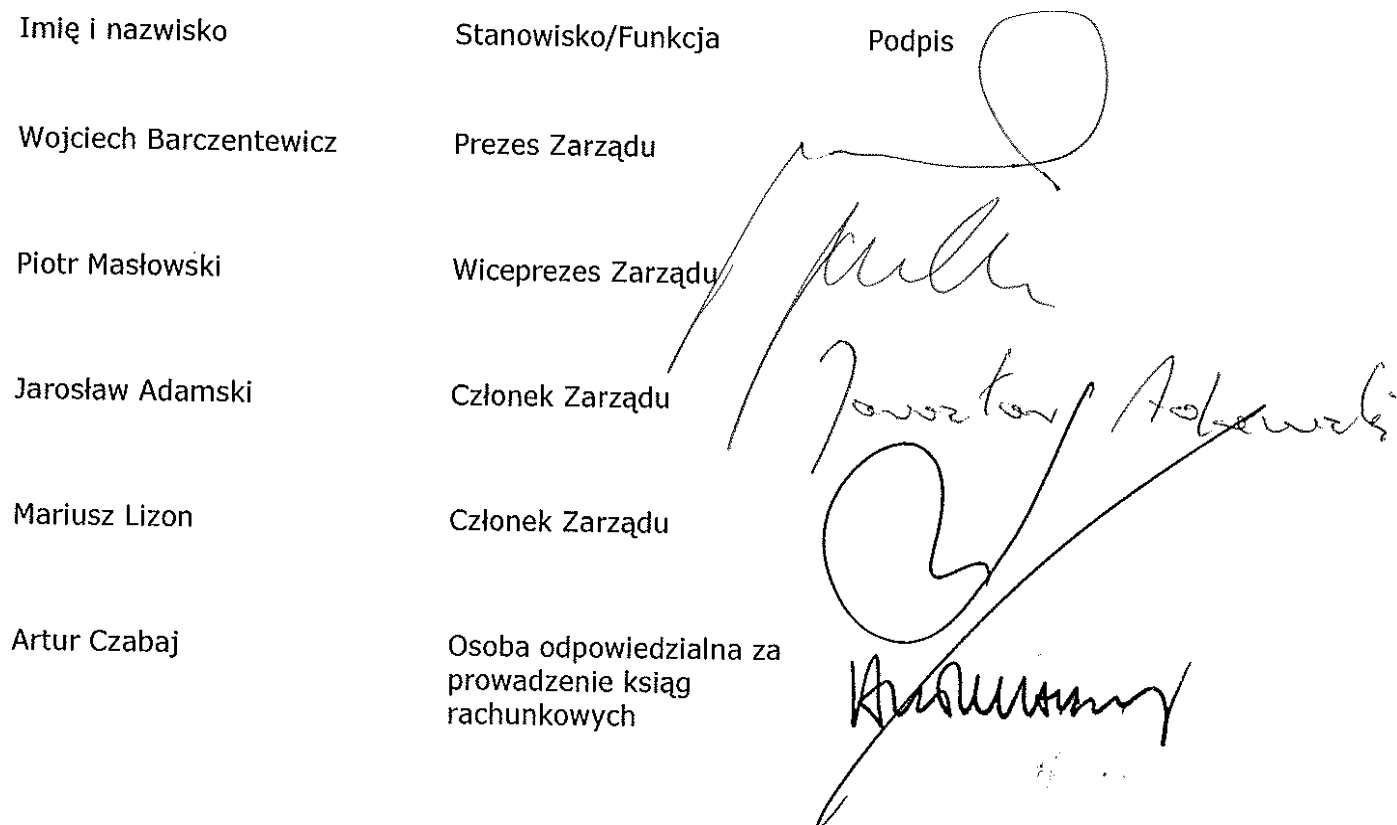 Imię i nazwisko Stanowisko/Funkcja Podpis
Wojciech Barczentewicz Prezes Zarządu
Piotr Masłowski Wiceprezes Zarządu
Jarosław Adamski Członek Zarządu Jarosław Adamski
Mariusz Lizon Członek Zarządu
Artur Czabaj Osoba odpowiedzialna za
prowadzenie ksiąg
rachunkowych